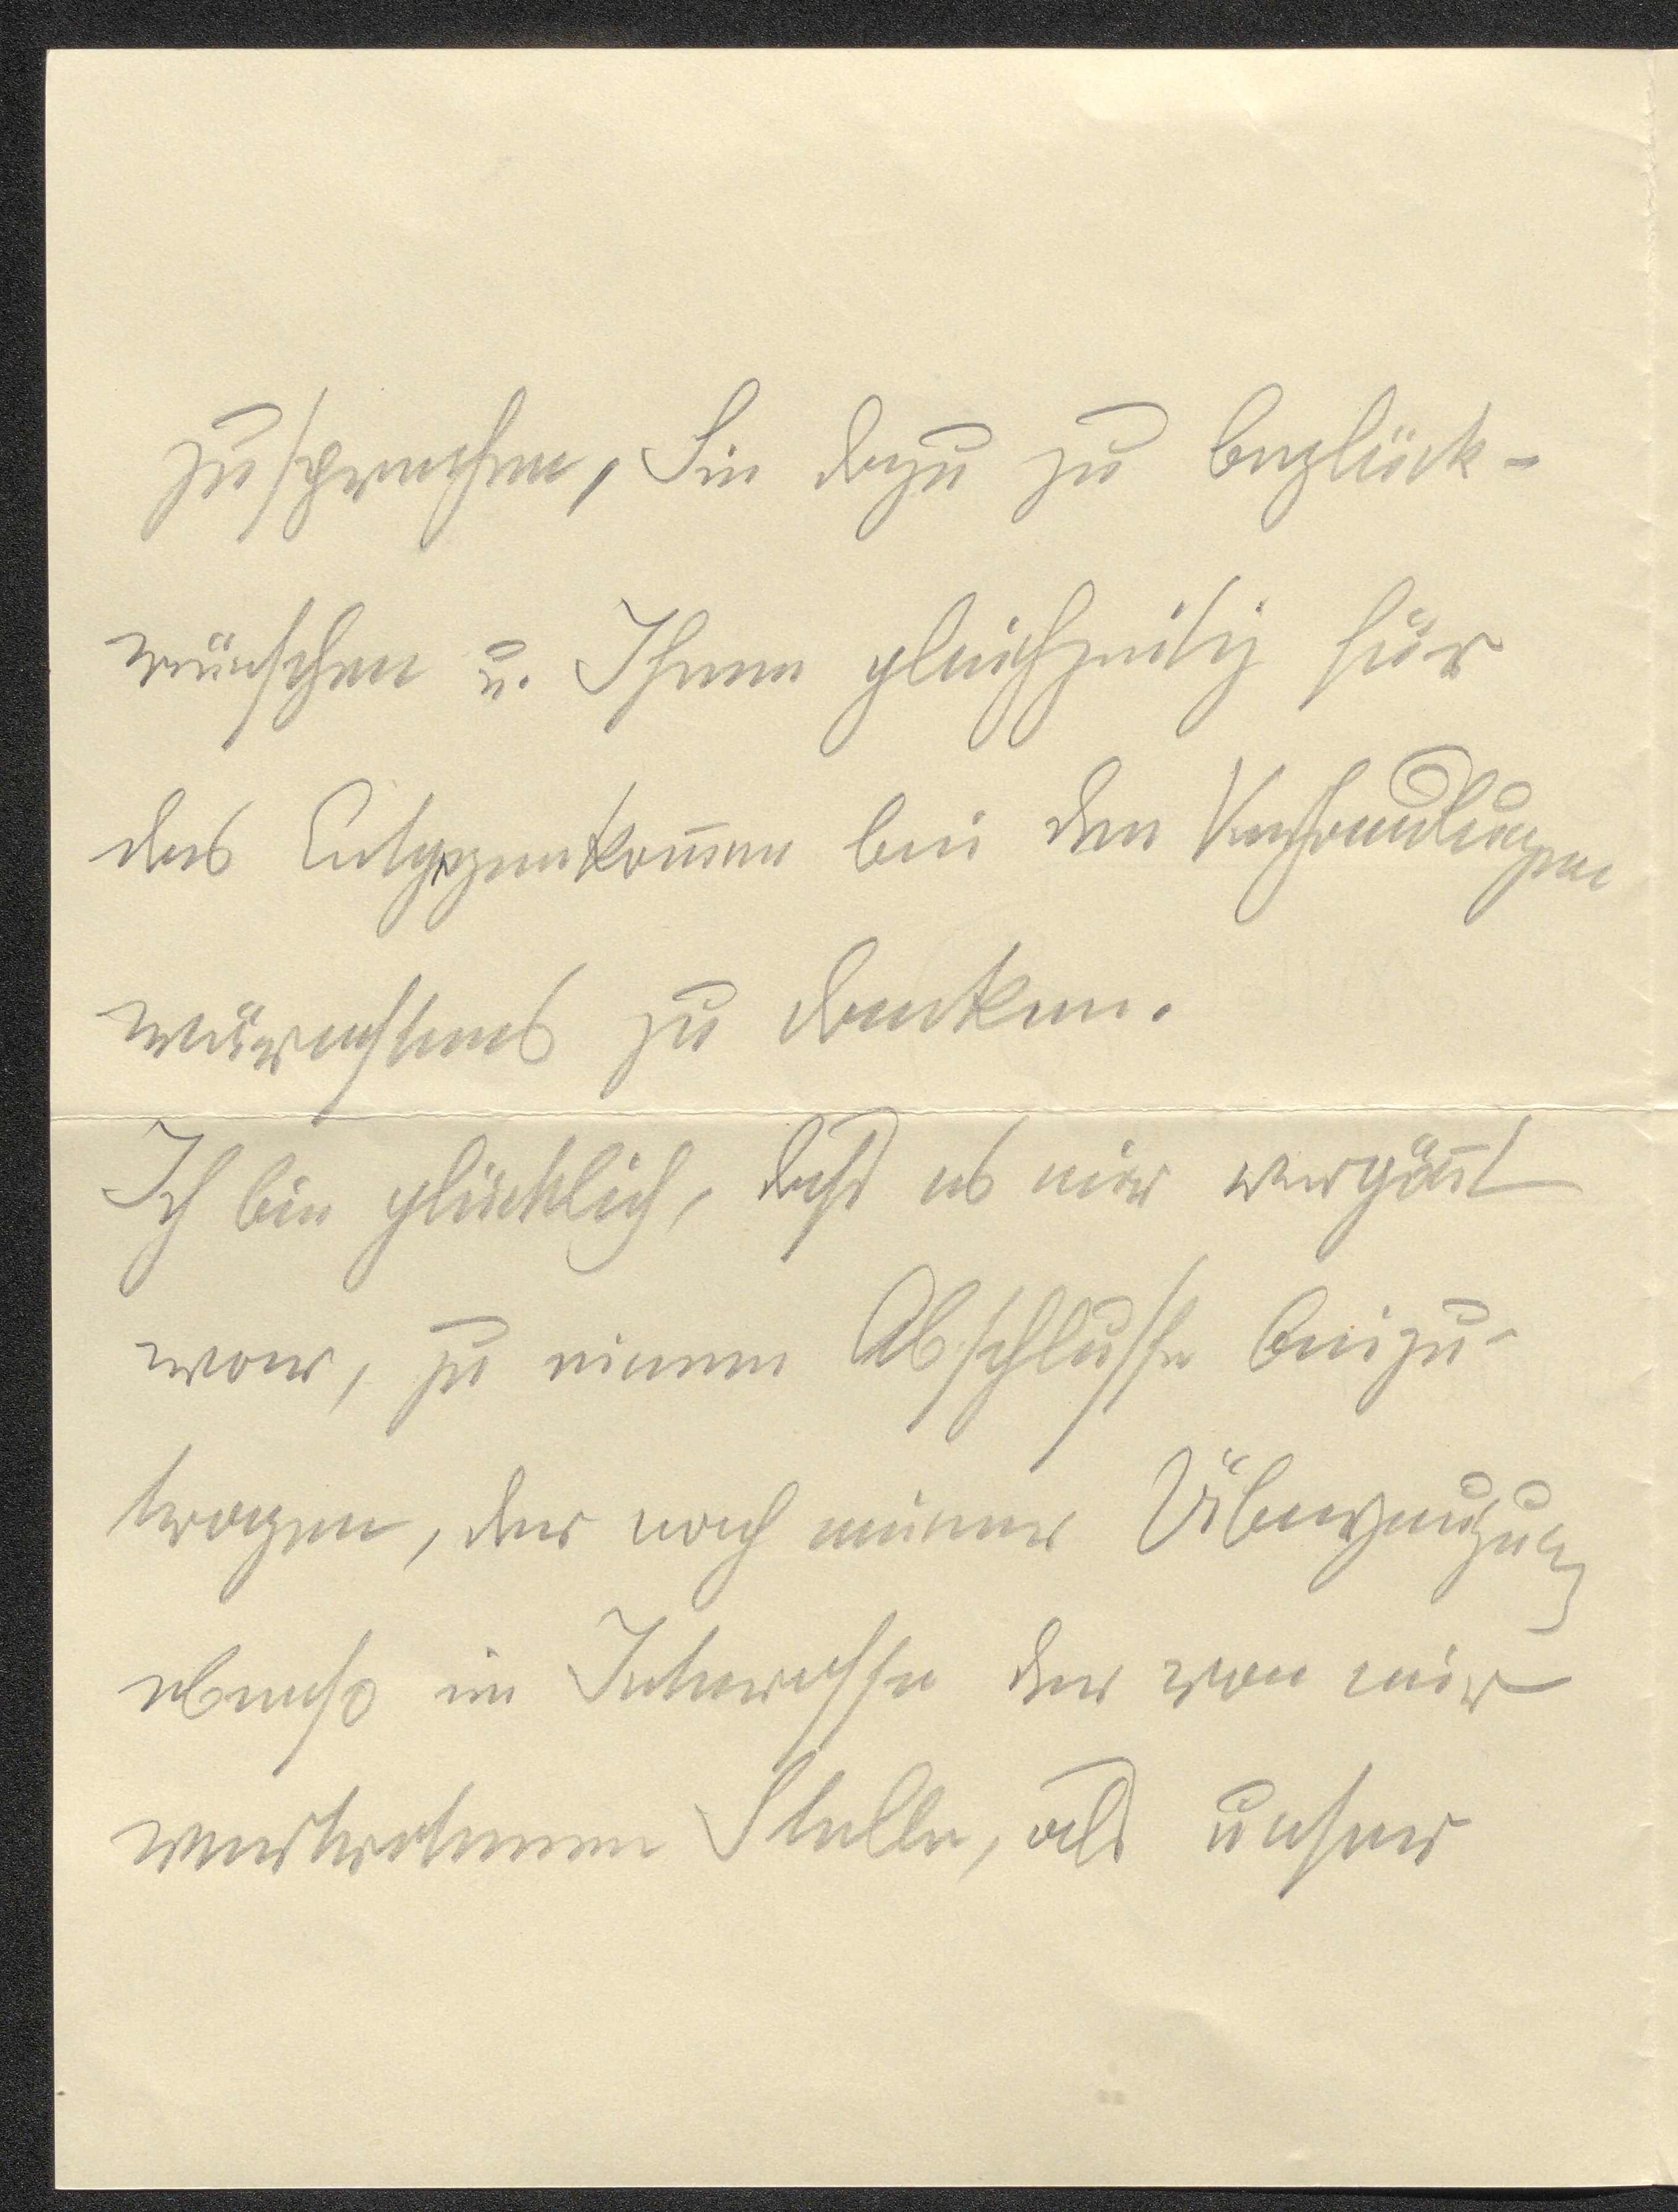 zusprechen, Sie dazu zu beglück-
wünschen u. Ihnen gleichzeitig für
das Entgegenkom̅en bei den Verhandlungen
wärmstens zu danken.
Ich bin glücklich, daß es mir vergön̅t
war, zu einem Abschlusse beizu-
tragen, der nach meiner Überzeugung
ebenso im Interesse der von mir
vertretenen Stelle, als unser